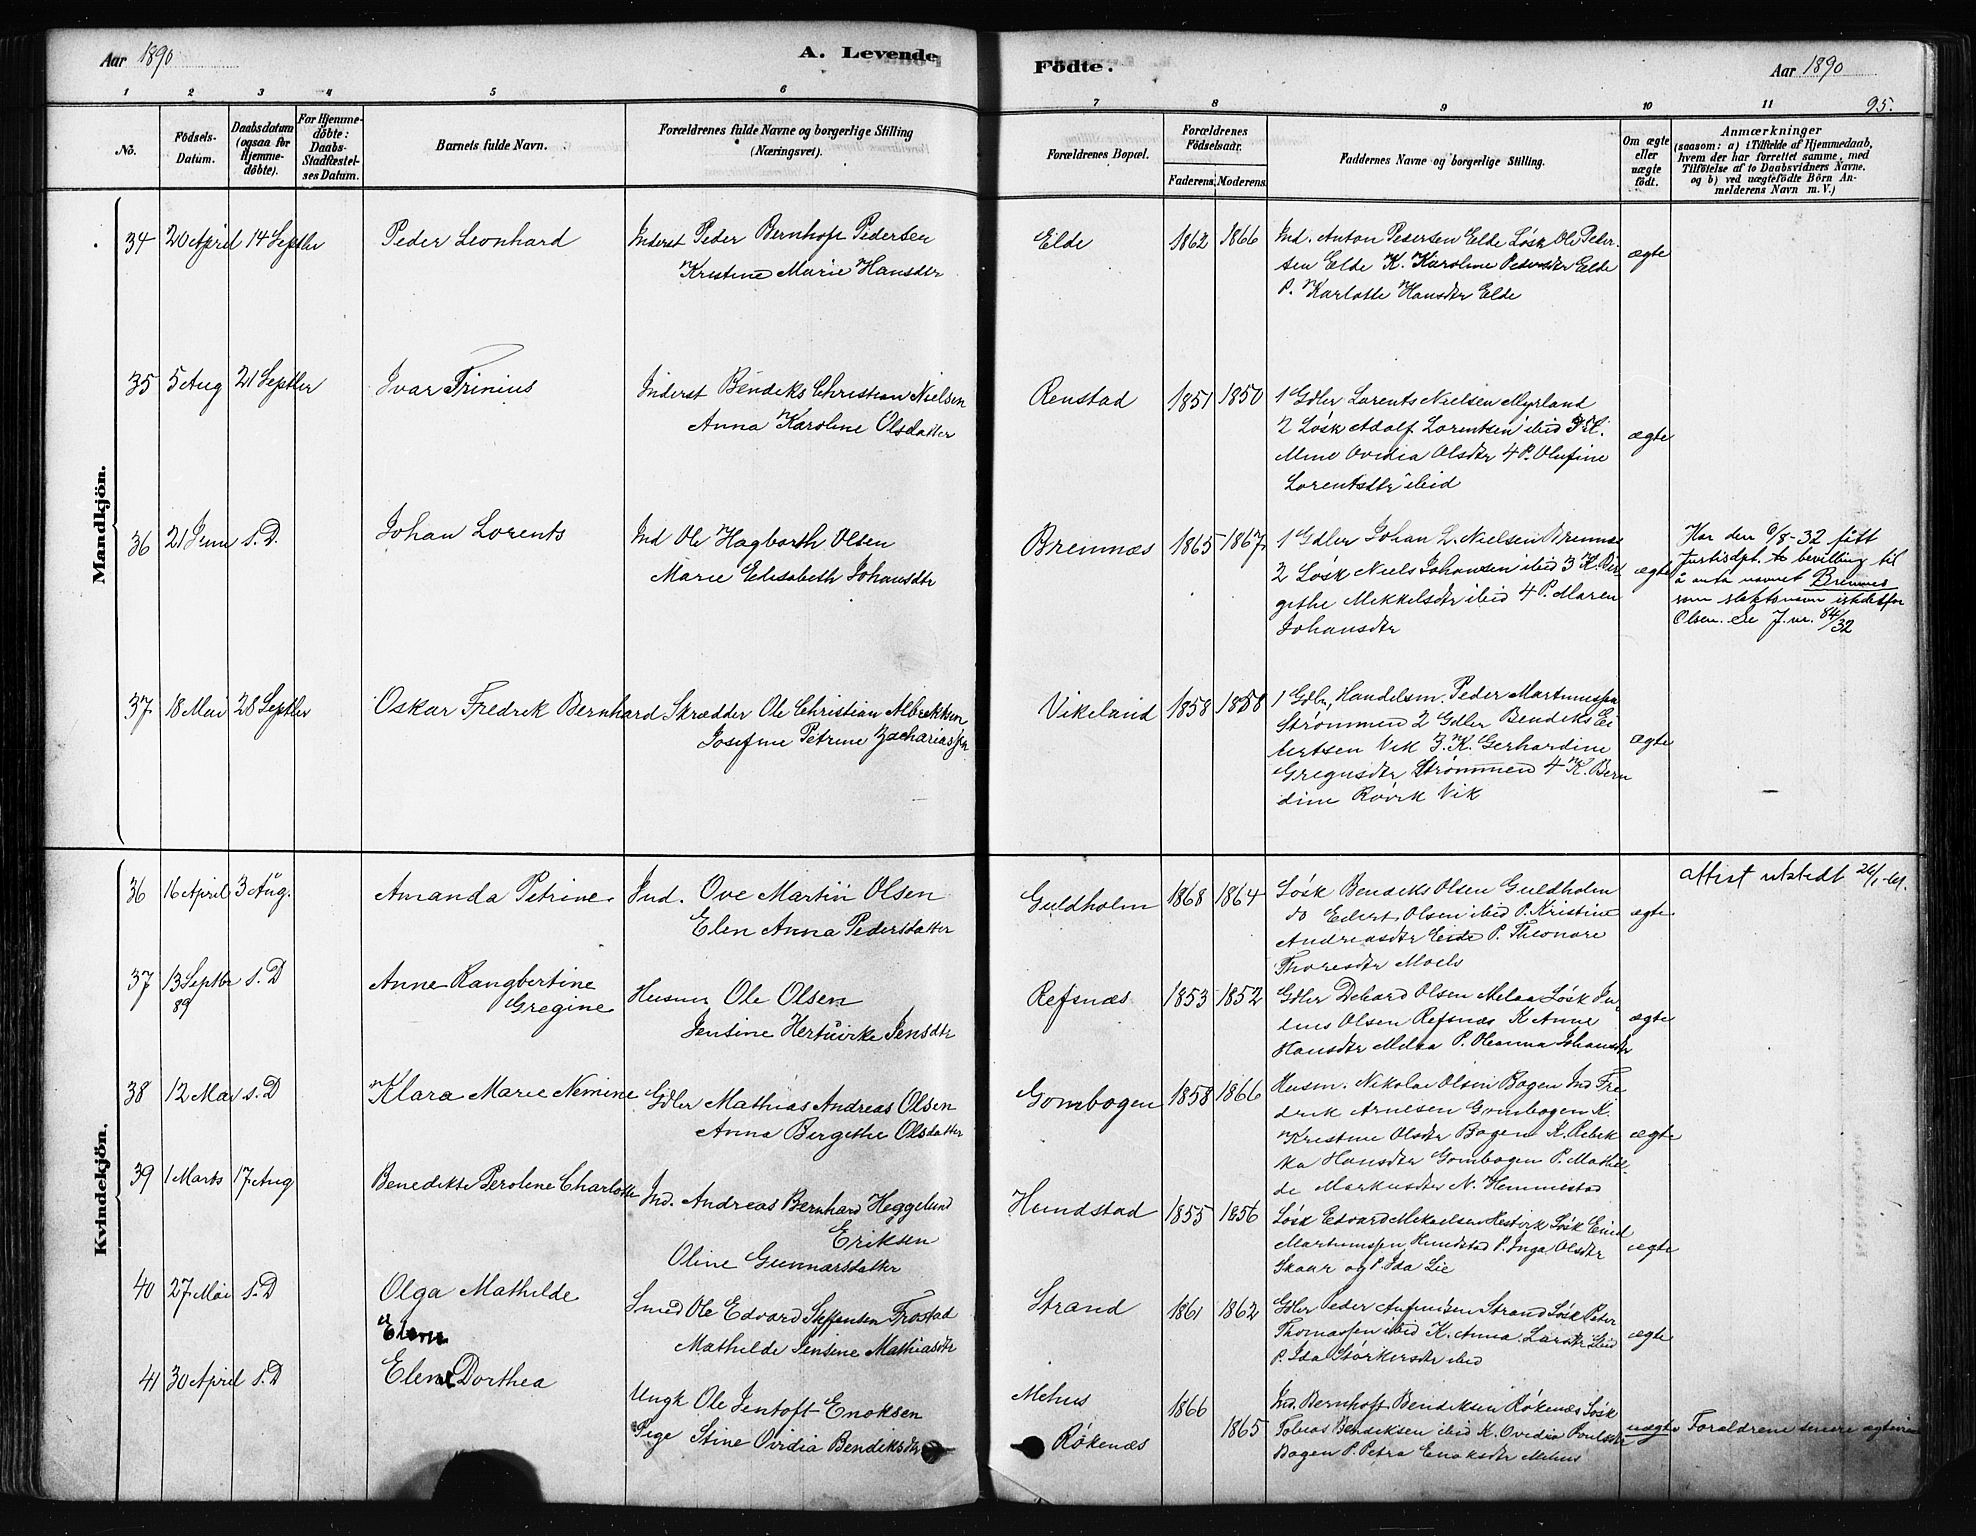 Aar 1890
A. Levende
Födte.
Aar 1890
95.
1 2 3 4 5 6 7 8 9 10 11
No.
Födsels-
Datum.
Daabsdatum
(ogsaa for
Hjemme-
döbte).
For Hjemme-
döbte:
Daabs-
Stadfæstel-
ses Datum.
Barnets fulde Navn.
Forældrenes fulde Navne og borgerlige Stilling
(Næringsvei).
Forældrenes Bopæl.
Forældrenes
Födselsaar.
Faderens. Moderens.
Faddernes Navne og borgerlige Stilling.
Om ægte
eller
uægte
födt.
Anmærkninger
(saasom: a) i Tilfælde af Hjemmedaab,
hvem der har forrettet samme, med
Tilföielse af to Daabsvidners Navne.
og b) ved uægtefödte Börn An-
melderens Navn m. V.)
Mandkjön.
34 20 April 14 Septbr Peder Leonhard
Inderst Peder Bernhoft Pedersen
Kristine Marie Hansdtr
Elde 1862 1866
Ind. Anton Pedersen Elde Løsk Ole Peder-
sen Elde K. Karoline Pedersdtr Elde
P. Karlotte Hansdtr Elde
ægte
35 5 Aug 21 Septbr Ivar Trinius
Inderst Bendiks Christian Nielsen
Anna Karoline Olsdatter
Renstad 1851 1850
1 Gdler Lorents Nielsen Myrland
2 Løsk Adolf Lorentsen ibid 3 K.
Mine Ovidia Olsdtr 4 P. Olufine
Lorentsdtr ibid
ægte
36 21 Juni s.D. Johan Lorents
Ind Ole Hagbarth Olsen
Marie Elisabeth Johansdtr
Bremnæs 1865 1867
1 Gdler Johan L. Nielsen Bremnæs
2 Løsk Niels Johansen ibid 3 K. Ber-
githe Mikkelsdtr ibid 4 P. Maren
Johansdtr
ægte
Har den 6/8-32 fått
Justisdpt. bevilling til
å anta navnet Bremnes
som slektsnavn istedetfor
Olsen. Se J.nr. 84/32
37 18 Mai 28 Septbr Oskar Fredrik Bernhard
Skrædder Ole Christian Albrektsen
Josefine Petrine Zachariassen
Vikeland 1858 1858
1 Gdlr, Handelsm. Peder Martinussen
Strømmen 2 Gdler Bendiks Ei-
bertsen Vik 3. K. Gerhardine
Gregusdtr Strømmen 4 K. Bern
dine Røvik Vik
ægte
Kvindekjön.
36 16 April 3 Aug. Amanda Petrine
Ind. Ove Martin Olsen
Elen Anna Pedersdatter
Guldholm 1868 1864
Løsk Bendiks Olsen Guldholm
do Edert Olsen ibid P. Kristine
Andreasdtr Eide P. Theonore
Thoresdtr Moels
ægte
attest utstedt 26/1-61.
37 13 Septbr 89 s.D Anne Rangbertine
Gregine
Husmn Ole Olsen
Jensine Hertvikke Jensdtr
Refsnæs 1853 1852
Gdler Dehard Olsen Melaa Løsk Ju-
lius Olsen Refsnæs K Anne
Hansdtr Melaa P. Oleanna Johansdtr
ægte
38 12 Mai s.D Klara Marie Nemine
Gdler Mathias Andreas Olsen
Anna Bergithe Olsdatter
Gombogen 1858 1866
Husm. Nikolai Olsen Bogen Ind Fre-
drik Arnesen Gombogen K.
Kristine Olsdtr Bogen K. Rebek
ka Hansdtr Gombogen P. Mathil-
de Markusdtr N. Hemmestad
ægte
39 1 Marts 17 Aug Benedikte Perolene Charlotte
Ind. Andreas Bernhard Heggelund
Eriksen
Oline Gunnarsdatter
Hundstad 1855 1856
Løsk Edvard Mikaelsen Hestvik Løsk Emil
Martinussen Hundstad P. Inga Olsdtr
Skaar og P. Ida Lie
ægte
40 27 Mai s.D Olga Mathilde
Smed Ole Edvard Steffensen Frostad
Mathilde Jensine Mathiasdtr
Strand 1861 1862
Gdler Peder Anfinsen Strand Løsk Peter
Thomassen ibid K. Anna Larsdtr ibid
P. Ida Størkersdtr ibid
ægte
41 30 April s.D Elene Dorthea
Ungk Ole Jentoft Enoksen
Pige Stine Ovidia Bendiksdtr
Mehus
Røkenæs
1866
1865
Ind. Bernhoft Bendiksen Røkenæs Løsk
Tobias Bendiksen ibid K. Ovidia Poulsdtr
Bogen P. Petra Enoksdtr Mehus
uægte Forældrene senere